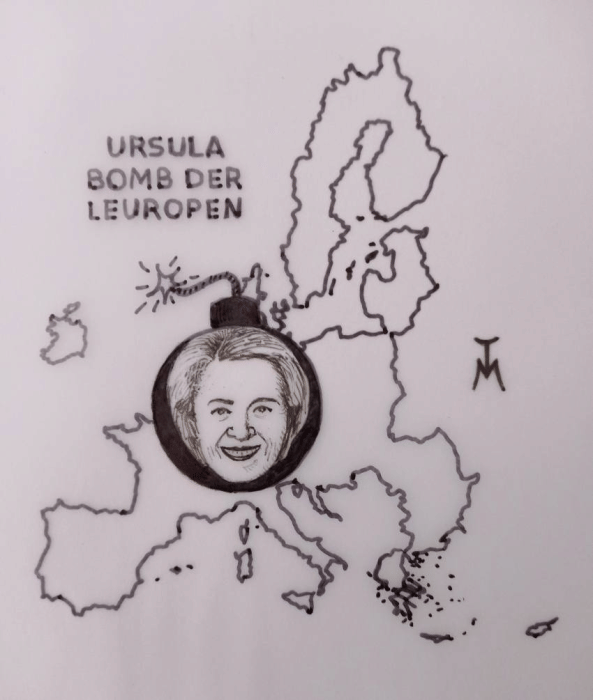 URSULA
BOMB DER
LEUROPEN
TM